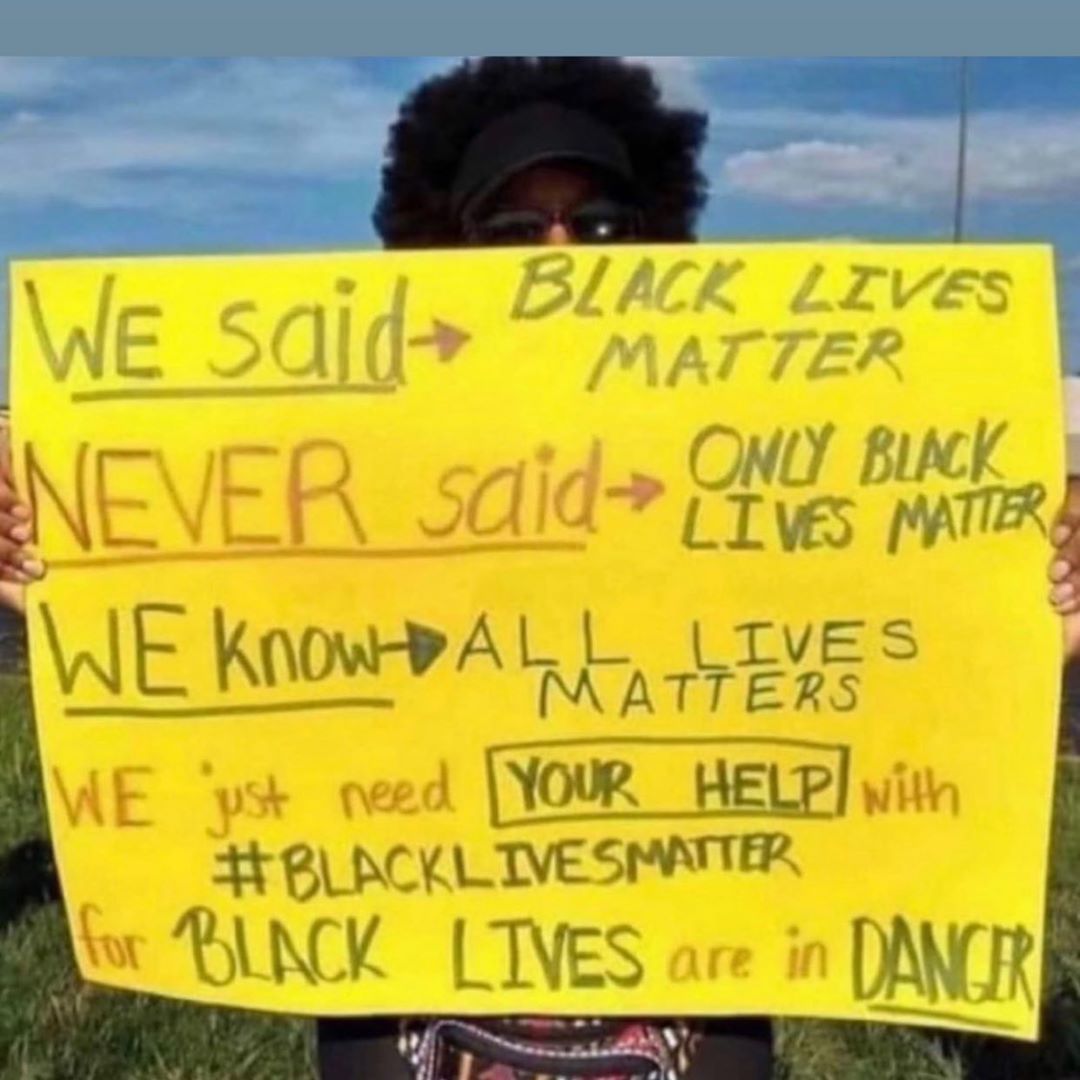 WE said→ BLACK LIVES
MATTER
NEVER said→ ONLY BLACK
LIVES MATTER
WE know→ ALL LIVES
MATTERS
WE just need YOUR HELP with
#BLACKLIVESMATTER
for BLACK LIVES are in DANGER